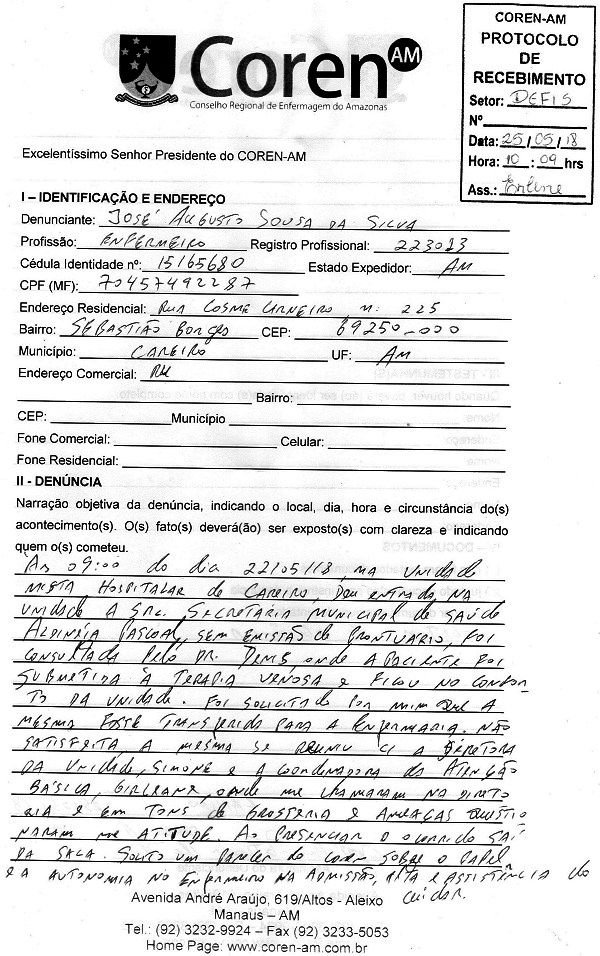 Coren AM
Conselho Regional de Enfermagem do Amazonas
COREN-AM
PROTOCOLO
DE
RECEBIMENTO
Setor: DEFIS
Nº
Data: 25/05/18
Hora: 10:09 hrs
Ass.: Erline
Excelentíssimo Senhor Presidente do COREN-AM
I – IDENTIFICAÇÃO E ENDEREÇO
Denunciante: JOSÉ AUGUSTO SOUSA DA SILVA
Profissão: ENFERMEIRO Registro Profissional: 223013
Cédula Identidade nº: 15165680 Estado Expedidor: AM
CPF (MF): 70457492287
Endereço Residencial: RUA COSME CARNEIRO N: 225
Bairro: SEBASTIÃO Borges CEP: 69250-000
Município: CAREIRO UF: AM
Endereço Comercial:
Bairro:
CEP: Município
Fone Comercial: Celular:
Fone Residencial:
II - DENÚNCIA
Narração objetiva da denúncia, indicando o local, dia, hora e circunstância do(s)
acontecimento(s). O(s) fato(s) deverá(ão) ser exposto(s) com clareza e indicando
quem o(s) cometeu.
AS 09:00 do dia 22/05/18, na UNIDADE
MISTA HOSPITALAR de CAREIRO, Deu entrada NA
UNIDADE A SRA. SECRETÁRIA MUNICIPAL de SAÚDE
ALDINÉIA PASCOAL, SEM EMISSÃO de PRONTUÁRIO, FOI
CONSULTADA PELO DR. DENIS onde A PACIENTE FOI
SUBMETIDA À TERAPIA VENOSA e FICOU NO CONFOR
TO DA UNIDADE. FOI SOLICITADO POR MIM QUE A
MESMA FOSSE TRANSFERIDA PARA A ENFERMARIA. NÃO
SATISFEITA, A MESMA SE REUNIU C/ A DIRETORA
DA UNIDADE, SIMONE e A COORDENADORA DA ATENÇÃO
BÁSICA, GIRLEANE, onde me CHAMARAM NA DIRETO
RIA e EM TONS de GROSSERIA e AMEAÇAS QUESTIO
NARAM MINHA ATITUDE. AO PRESENCIAR O OCORRIDO SAÍ
DA SALA. SOLICITO UM PARECER do COREN SOBRE O PAPEL
e A AUTONOMIA NO ENFERMEIRO NA ADMISSÃO, ALTA e ASSISTÊNCIA do
cuidar.
Avenida André Araújo, 619/Altos - Aleixo
Manaus – AM
Tel.: (92) 3232-9924 – Fax (92) 3233-5053
Home Page: www.coren-am.com.br